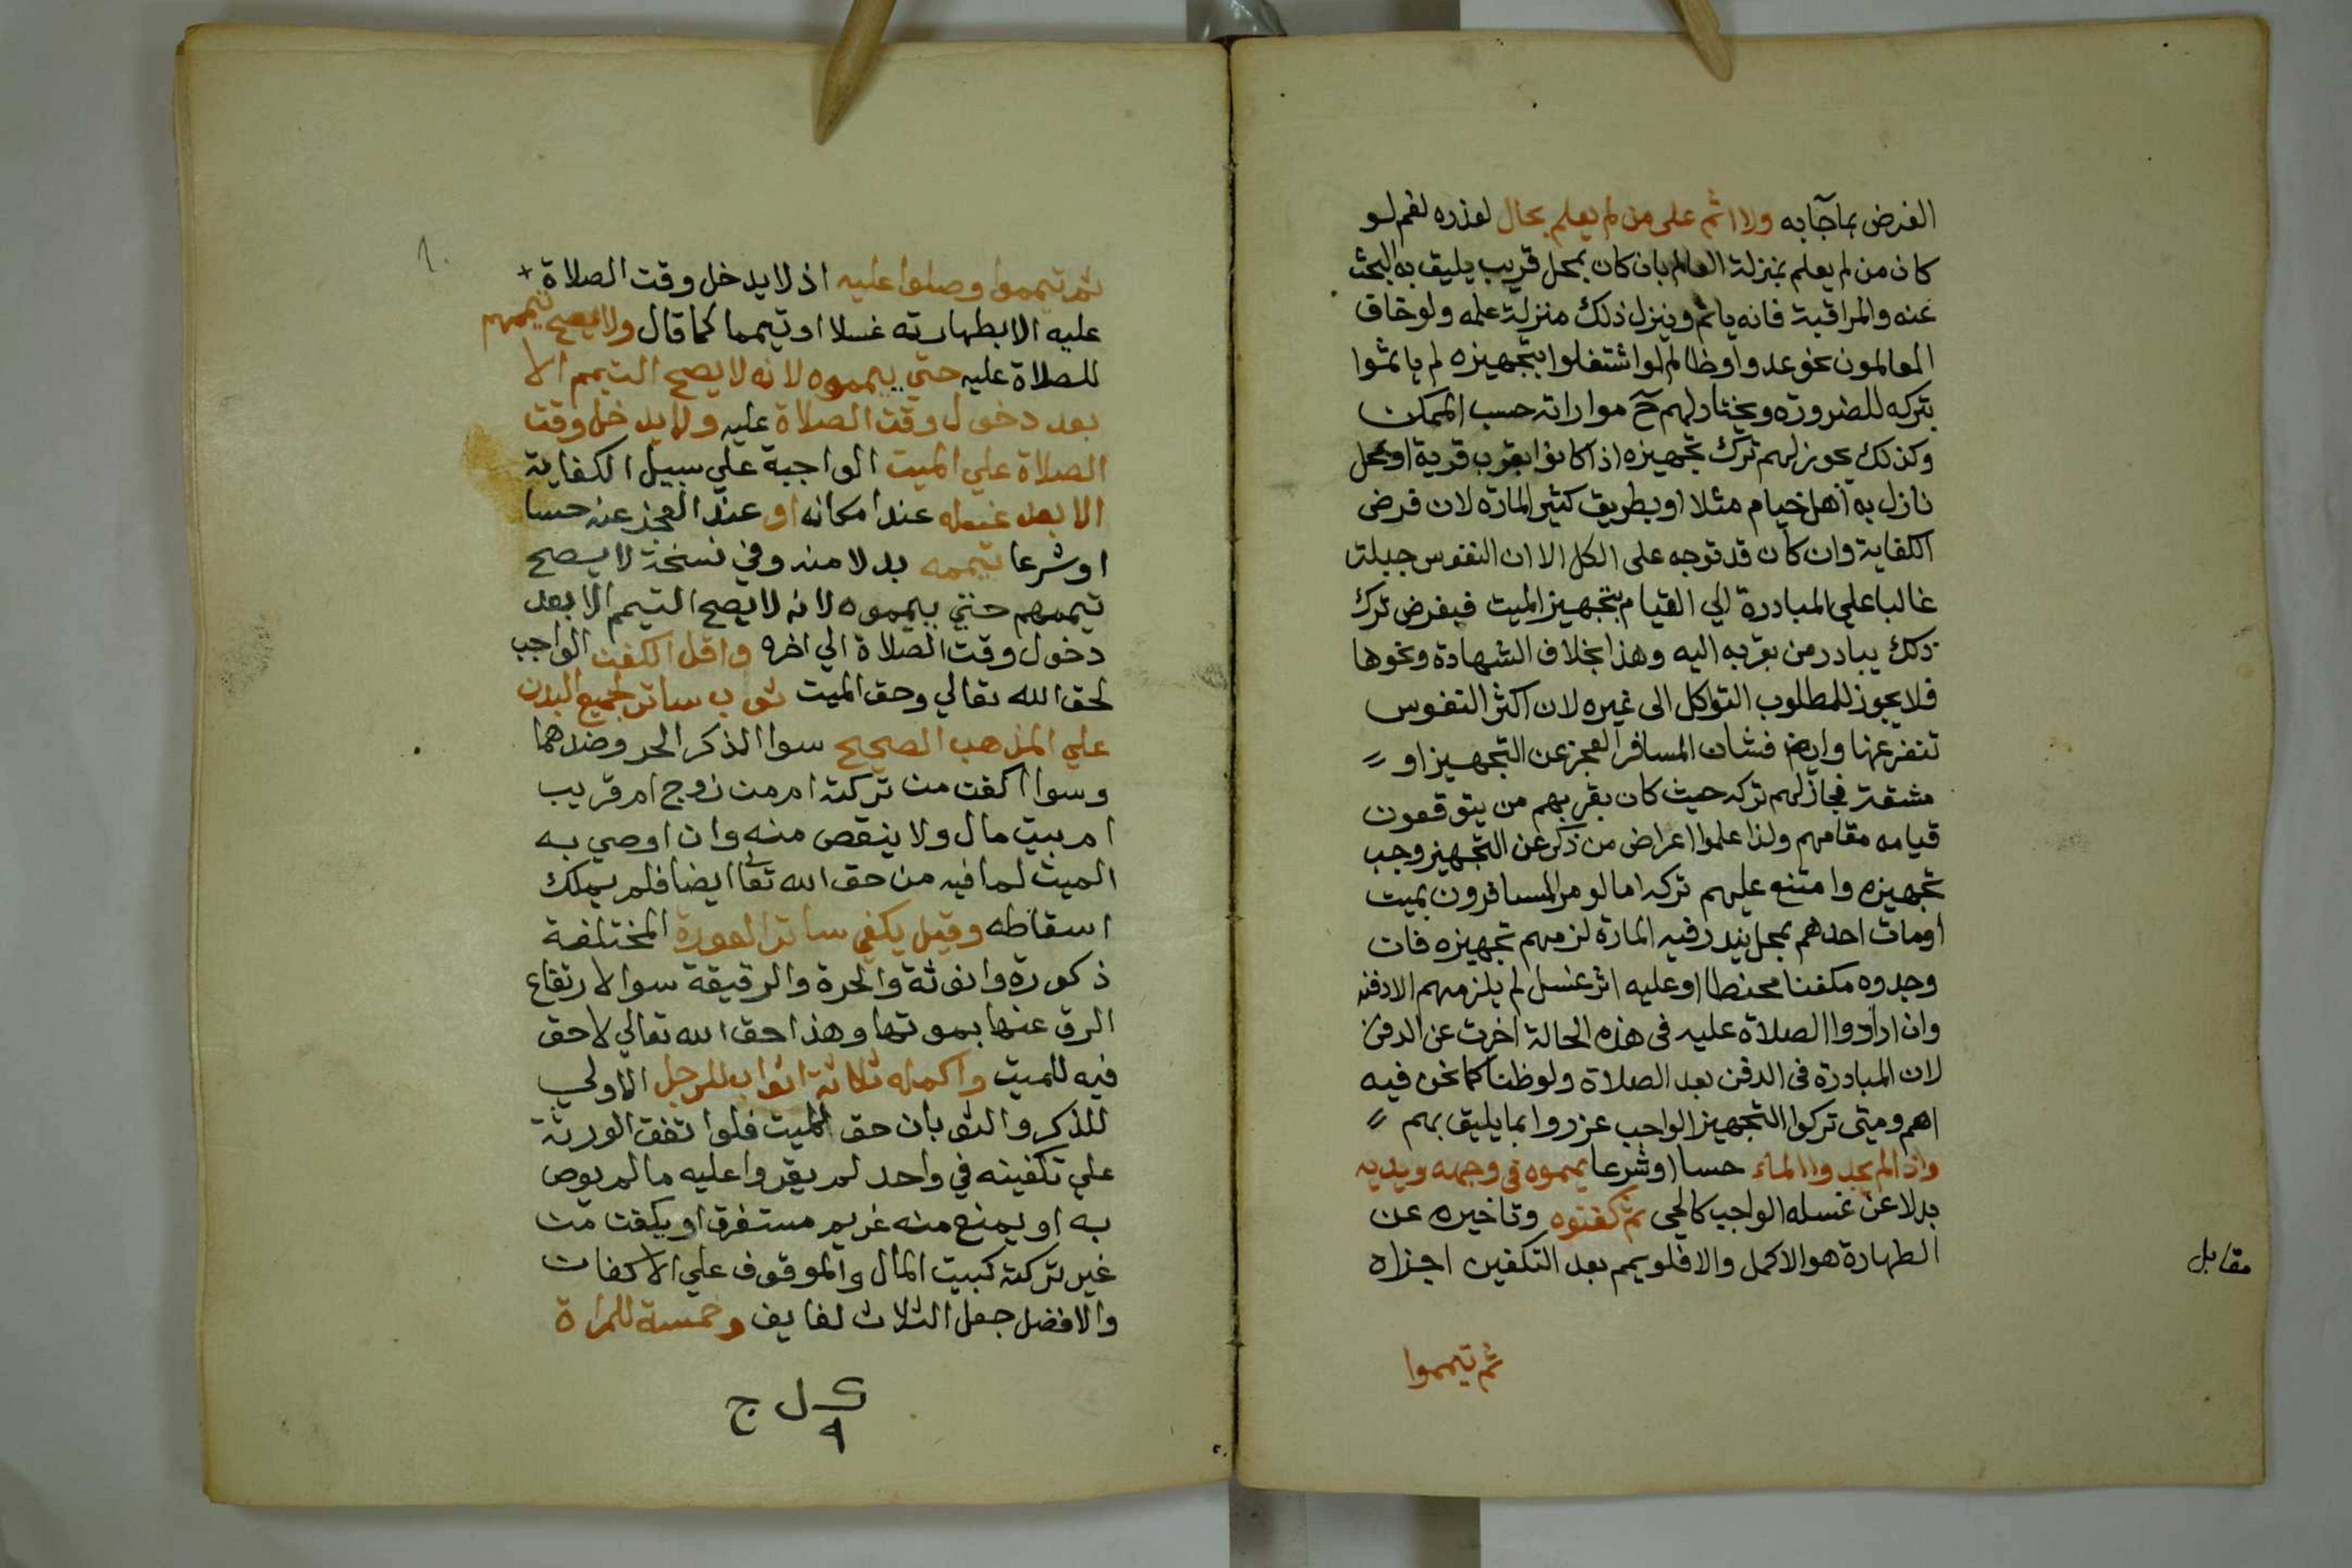 الفرض بماجآبه ولا اثم على من لم يعلم بحال لعذره نعم لو
كان من لم يعلم بمنزلة العالم بان كان بمحل قريب يليق به البحث
عنه والمراقبة فانه ياثم وينزل ذلك منزلة علمه ولو خاف
العالمون نحو عدو او ظالم لو اشتغلوا بتجهيزه لم ياثموا
بتركه للضرورة ويختار لهم ح مواراته حسب الممكن
وكذلك يجوز لهم ترك تجهيزه اذا كانوا بقرب قرية او محل
نازل به اهل خيام مثلا او بطريق كثير المارة لان فرض
الكفاية وان كان قد توجه على الكل الا ان النفوس جبلت
غالبا على المبادرة الي القيام بتجهيز الميت فبفرض ترك
ذلك يبادر من بقربه اليه وهذا بخلاف الشهادة ونحوها
فلا يجوز للمطلوب التواكل الى غيره لان اكثر النفوس
تنفر عنها وايضا فشان المسافر العجز عن التجهيز او
مشقته فجاز لهم تركه حيث كان بقربهم من يتوقعون
قيامه مقامهم ولذا علموا اعراض من ذكر عن التجهيز وجب
تجهيزه وامتنع عليهم تركه اما لو مر المسافرون بميت
اومات احدهم بمحل يندر فيه المارة لزمهم تجهيزه فان
وجدوه مكفنا محنطا او عليه اثر غسل لم يلزمهم الا دفنه
وان ارادوا الصلاة عليه في هذه الحالة اخرت عن الدفن
لان المبادرة في الدفن بعد الصلاة ولو ظنا كما نحن فيه
اهم ومتى تركوا التجهيز الواجب عزروا بما يليق بهم
واذا لم يجدوا الماء حسا او شرعا يمموه في وجهه ويديه
بدلا عن غسله الواجب كالحي ثم كفنوه وتاخيره عن
الطهارة هو الاكمل والا فلو يمم بعد التكفين اجزاه
مقابل
ثم تيمموا
ثم تيمموا وصلوا عليه اذ لا يدخل وقت الصلاة
عليه الا بطهارته غسلا او تيمما كما قال ولا يصح تيممهم
للصلاة عليه حتي ييمموه لانه لا يصح التيمم الا
بعد دخول وقت الصلاة عليه ولا يدخل وقت
الصلاة علي الميت الواجبة علي سبيل الكفاية
الا بعد غسله عند امكانه او عند العجز عنه حسا
او شرعا تيممه بدلا منه وفي نسخة لا يصح
تيممهم حتي ييمموه لانه لا يصح التيمم الا بعد
دخول وقت الصلاة الي اخره واقل الكفن الواجب
لحق الله تعالي وحق الميت ثوب ساتر لجميع البدن
علي المذهب الصحيح سوا الذكر الحر وضدهما
وسوا اكفن من تركته ام من زوج ام قريب
ام بيت مال ولا ينقص منه وان اوصي به
الميت لما فيه من حق الله تعالي ايضا فلم يملك
اسقاطه وقيل يكفي ساتر العورة المختلفة
ذكورة وانوثة والحرة والرقيقة سوا لارتفاع
الرق عنها بموتها وهذا حق الله تعالي لا حق
فيه للميت واكمله ثلاثة اثواب للرجل الاولي
للذكر والثوبان حق الميت فلو اتفق الورثة
علي تكفينه في واحد لم يقروا عليه ما لم يوص
به او يمنع منه غريم مستغرق او يكفن من
غير تركته كبيت المال والموقوف علي الاكفان
والافضل جعل الثلاث لفايف وخمسة للمراة